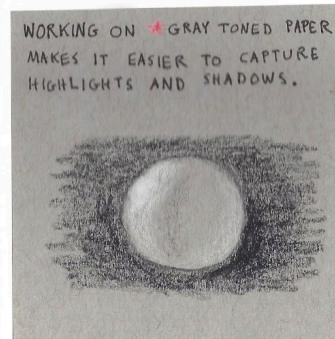 WORKING ON GRAY TONED PAPER
MAKES IT EASIER TO CAPTURE
HIGHLIGHTS AND SHADOWS.